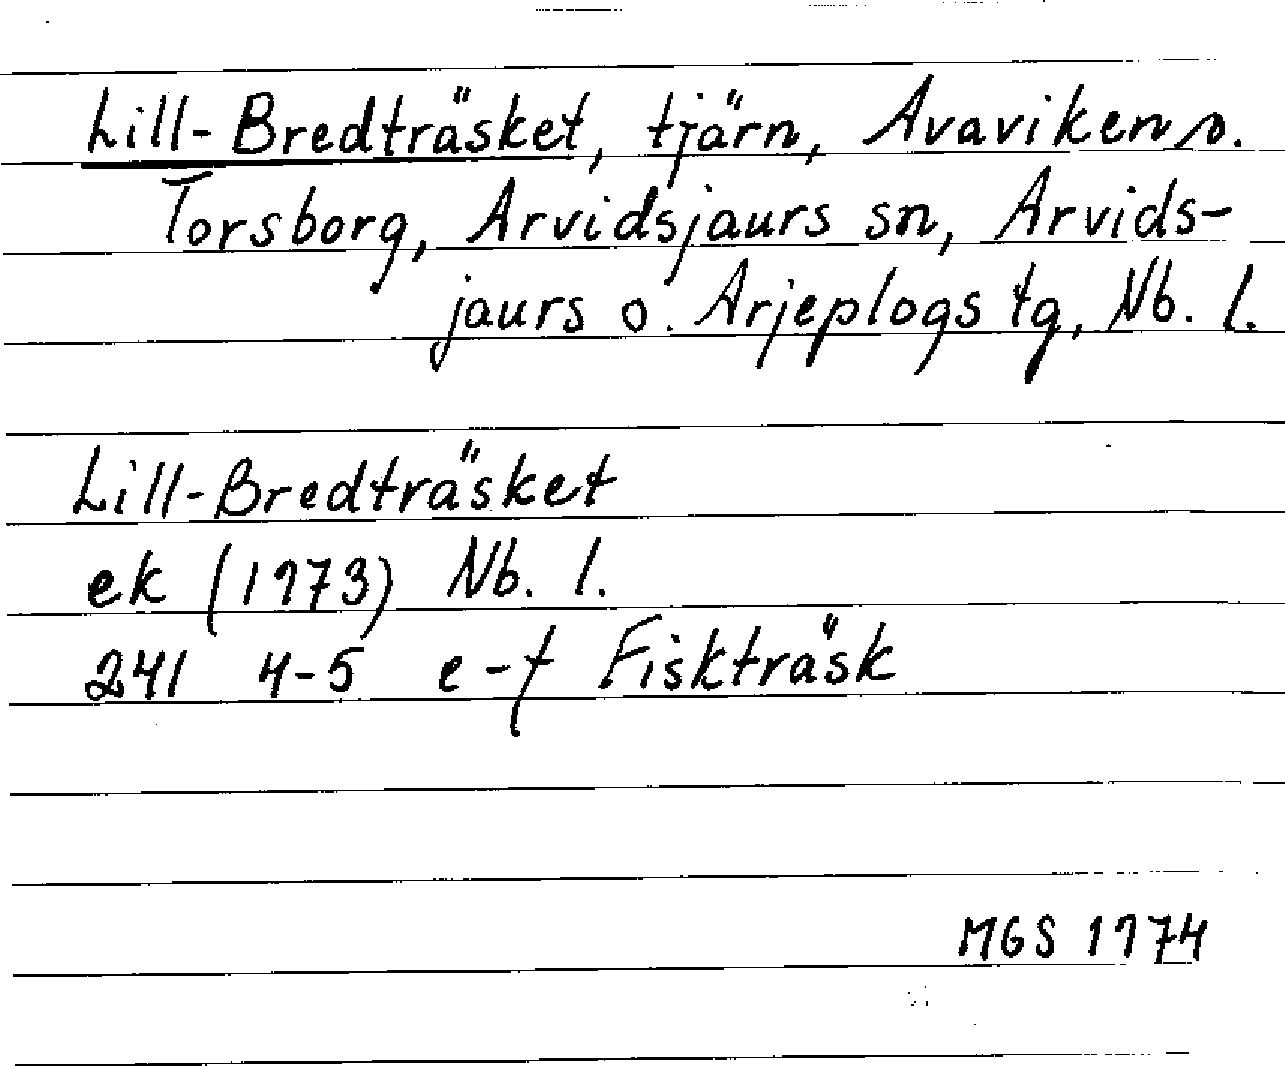 Lill-Bredträsket, tjärn, Avaviken o.
Torsborg, Arvidsjaurs sn, Arvids-
jaurs o. Arjeplogs tg, Nb. l.
Lill-Bredträsket
ek (1973) Nb. l.
241 4-5 e-f Fiskträsk
MGS 1974